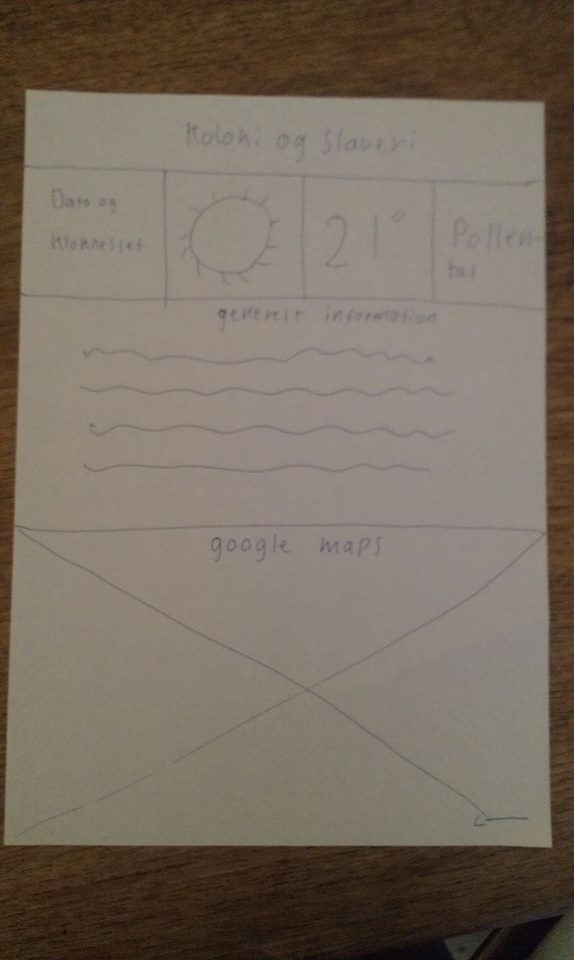 Koloni og Slaveri
Dato og
Klokkeslet
21°
Pollen-
tal
generelt information
google maps